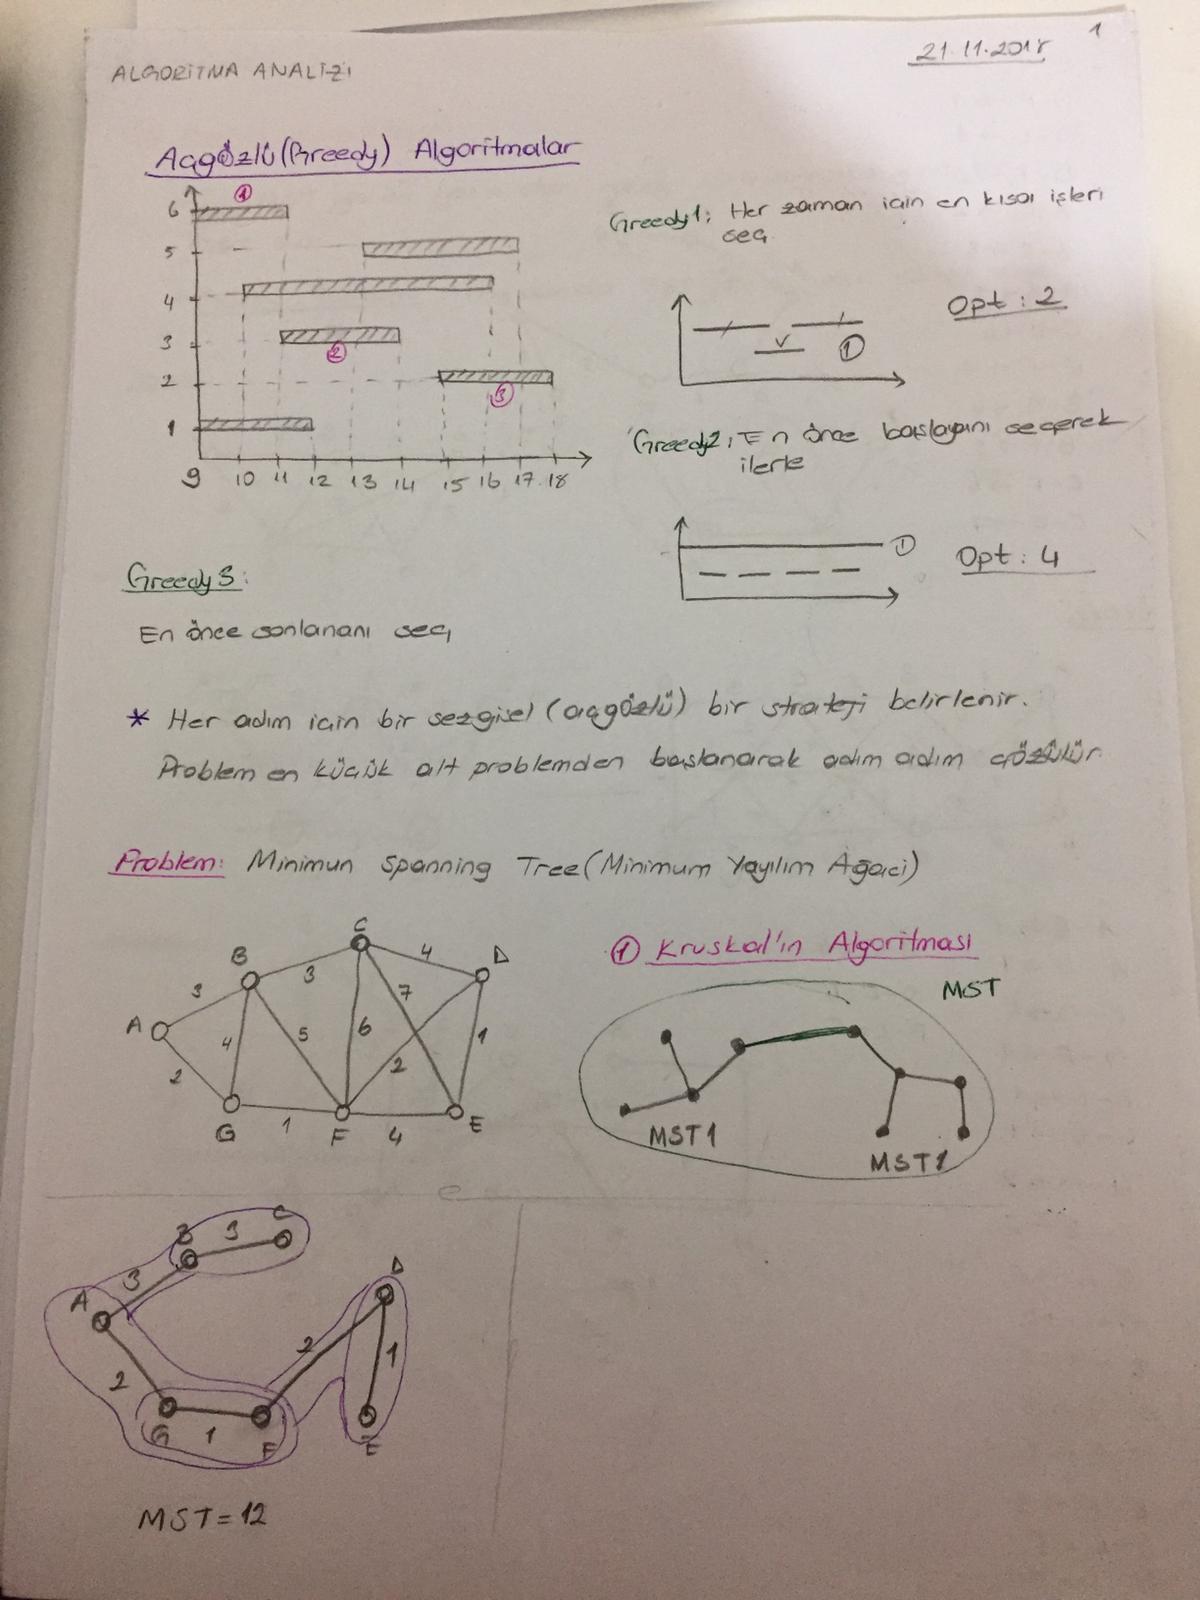 1
21.11.2018
ALGORİTMA ANALİZİ
Açgözlü (Greedy) Algoritmalar
6
5
4
3
2
1
9 10 11 12 13 14 15 16 17 18
1
2
3
Greedy1: Her zaman için en kısa işleri
seç
Opt: 2
1
Greedy2: En önce başlayanı seçerek
ilerle
1
Opt: 4
Greedy3:
En önce sonlananı seç
* Her adım için bir sezgisel (açgözlü) bir strateji belirlenir.
Problem en küçük alt problemden başlanarak adım adım çözülür.
Problem: Minimun Spanning Tree (Minimum Yayılım Ağaci)
A B C D E F G
3 3 4 2 4 5 6 7 2 1 1 4
1 Kruskal'ın Algoritması
MST
MST1
MST1
A B C D E F G
3 3 2 1 2 1
MST = 12